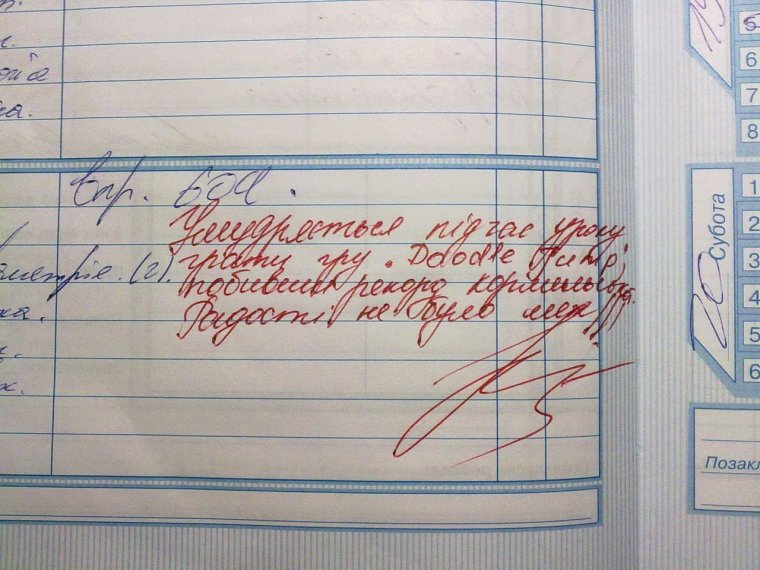 Впр. 604.
Умудряється під час уроку
грати гру "Doodle Jump",
побивши рекорд
Радості не було меж!!!
(г).
ка.
Субота
20
19
5
6
7
8
1
2
3
4
5
6
Позакл